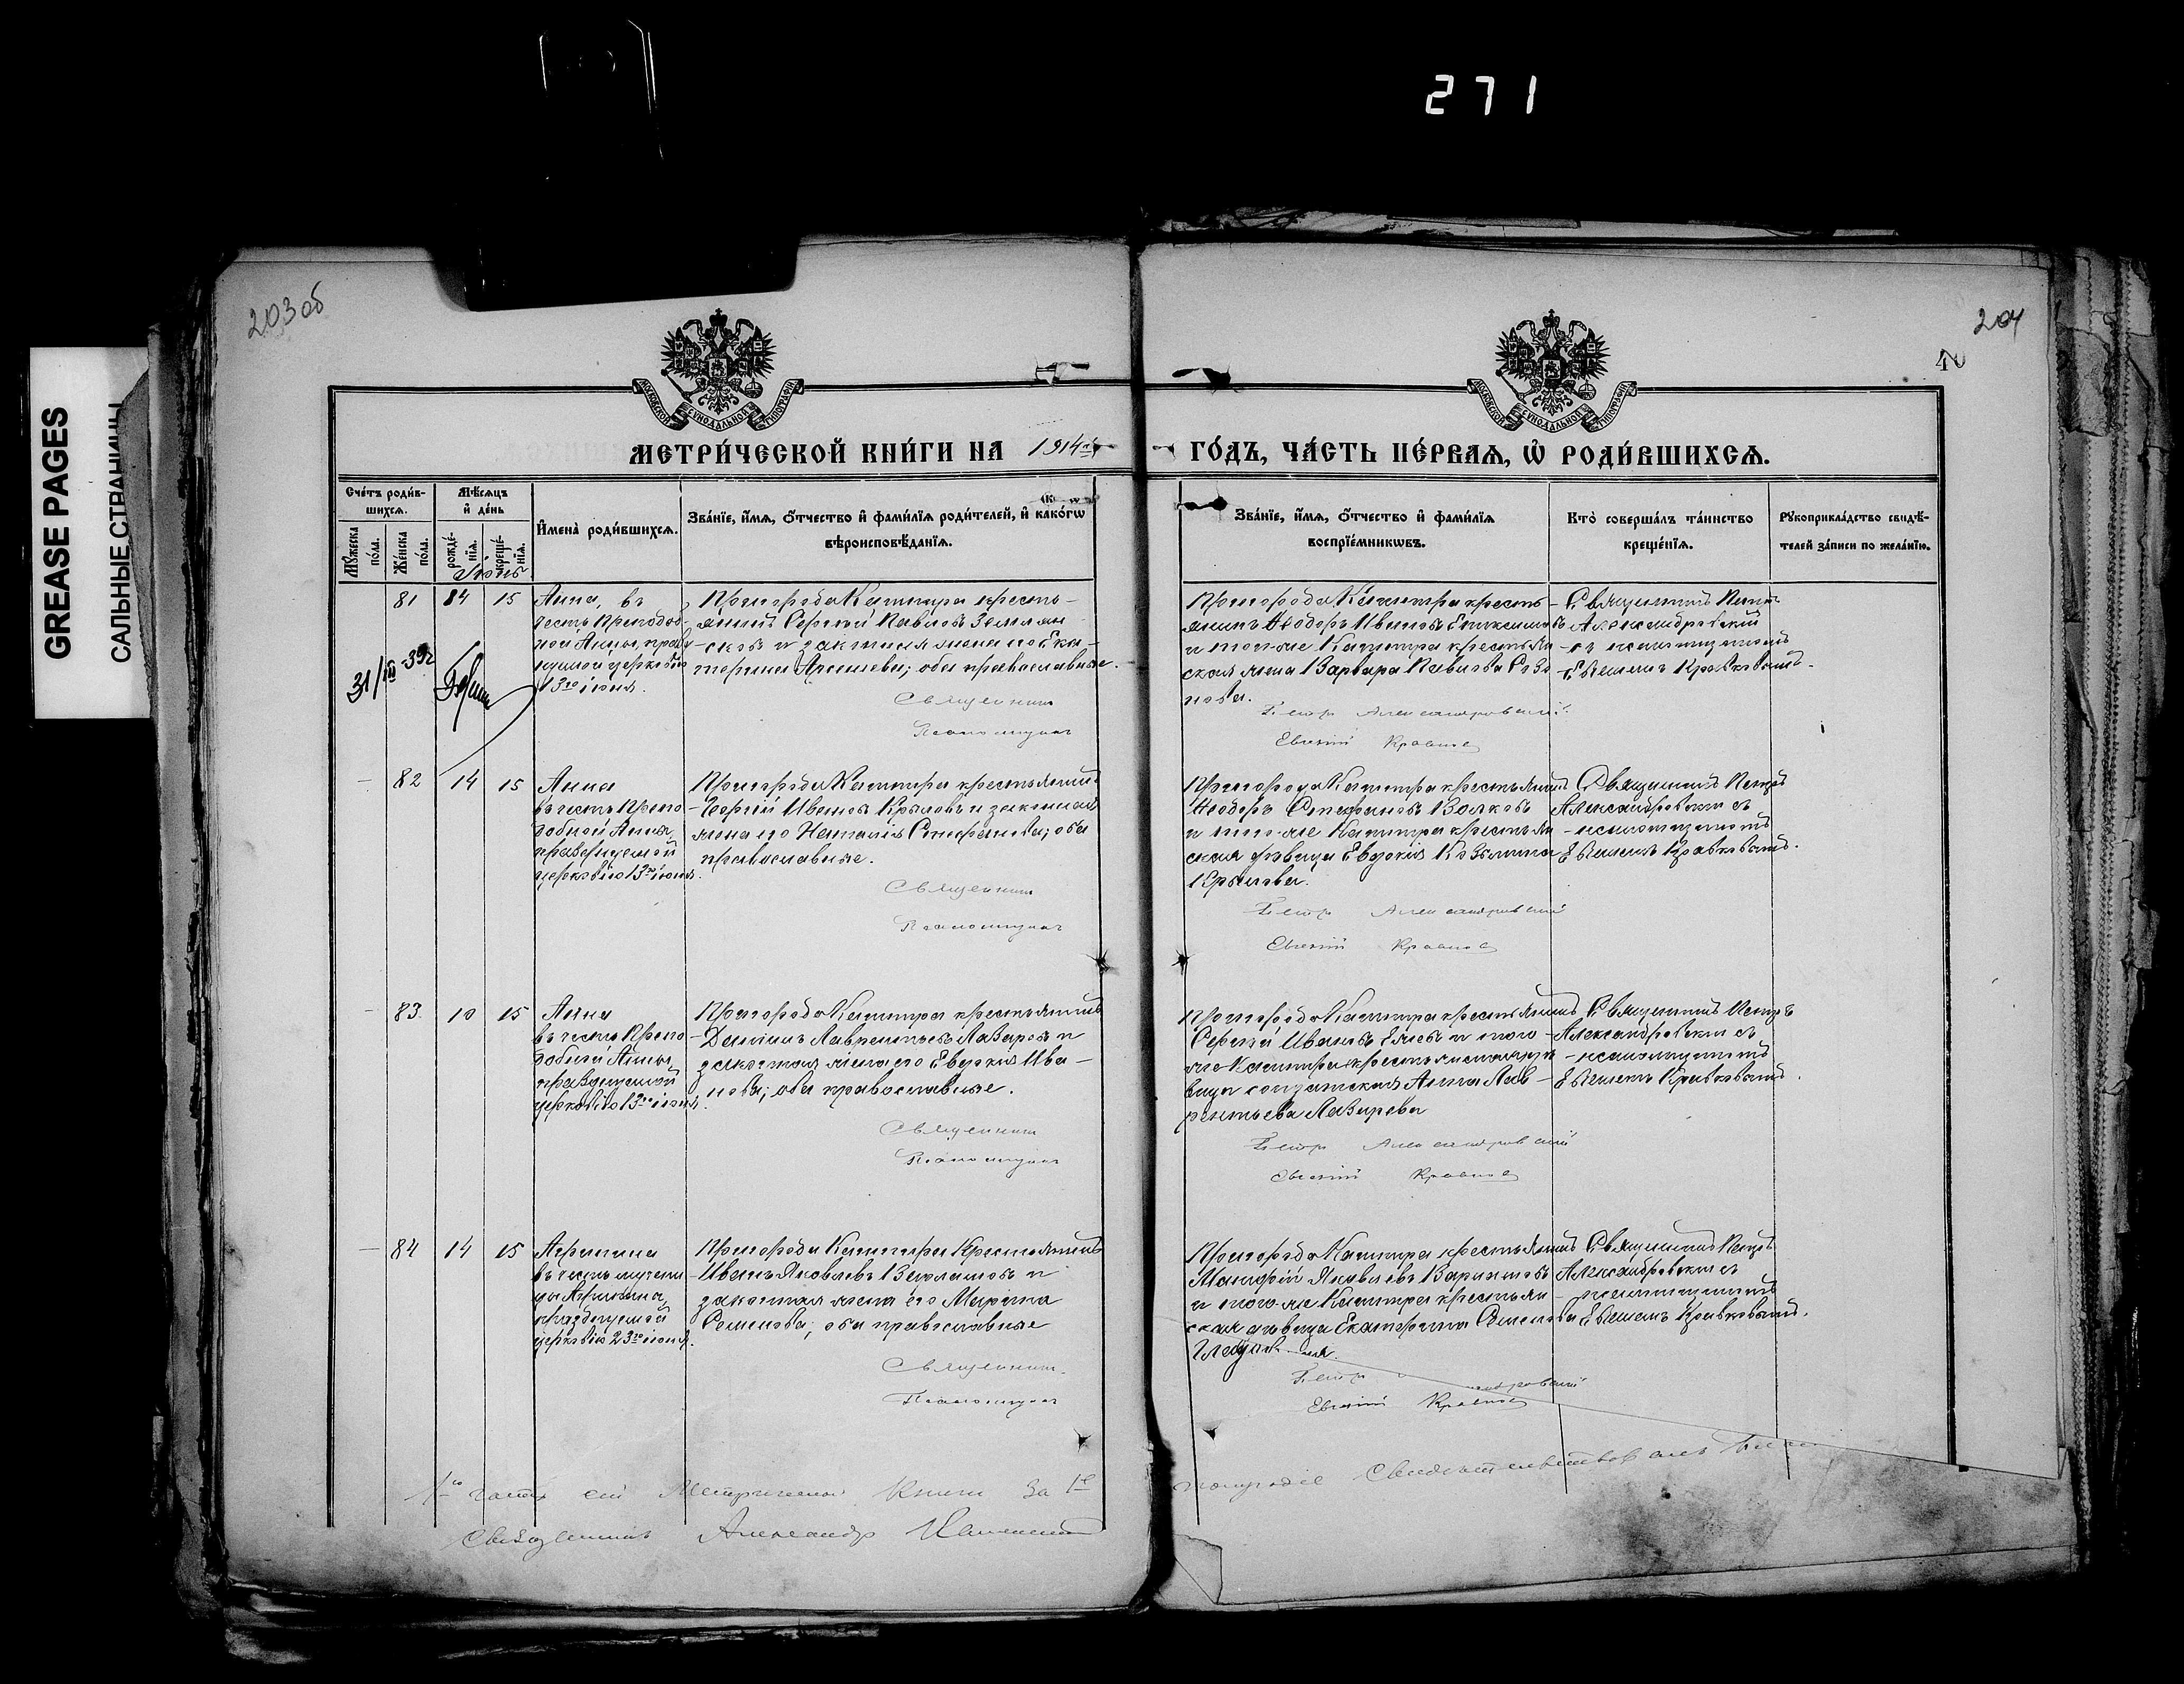 271
GREASE PAGES
САЛЬНЫЕ СТРАНИЦЫ
203об
204
МОСКОВСКОЙ СѴНОДАЛЬНОЙ ТИПОГРАФІИ
МОСКОВСКОЙ СѴНОДАЛЬНОЙ ТИПОГРАФІИ
МЕТРИ́ЧЕСКОЙ КНИ́ГИ НА 1914
ГО́ДЪ, ЧА́СТЬ ПЕ́РВАѦ, Ѡ҆ РОДИ́ВШИХСѦ.
Сче́тъ роди́вшихсѧ.
Мꙋ́жеска по́ла.
Же́нска по́ла.
Мѣ́сѧцъ и҆ де́нь
рожде́нїѧ.
креще́нїѧ.
И҆мена̀ роди́вшихсѧ.
Зва́нїе, и҆́мѧ, ѻ҆́тчество и҆ фами́лїѧ роди́телей, и҆ како́гѡ
вѣроисповѣ́данїѧ.
Зва́нїе, и҆́мѧ, ѻ҆́тчество и҆ фами́лїѧ
воспрїе́мникѡвъ.
Кто̀ соверша́лъ та́инство
креще́нїѧ.
Рꙋкоприкла́дство свидѣ́-
телей за́писи по жела́нїю.
Іюнь
81 14 15
Анна, въ
честь Преподоб-
ной Анны, празд
нуемой церковію
13го іюня.
Пригорода Кашпира кресть-
янинъ Сергѣй Павловъ Землян
сковъ и законная жена его Ека-
терина Арсеньева; оба православные.
Священникъ
Псаломщикъ
Пригорода Кашпира кресть-
янинъ Ѳеодоръ Ивановъ
и того-же Кашпира крестьян
ская жена Варвара Павлова
нова.
Петръ Александровскій
Евгеній Кравковъ
Священникъ Петръ
Александровскій
съ псаломщикомъ
Евгеніемъ Кравковымъ.
31/III-39г
82 14 15
Анна
въ честь Препо
добной Анны,
празднуемой
церковію 13го іюня.
Пригорода Кашпира крестьянинъ
Георгій Ивановъ Крыловъ и законная
жена его Наталія Стефанова; оба
православные.
Священникъ
Псаломщикъ
Пригорода Кашпира крестьянинъ
Ѳеодоръ Стефановъ Волковъ
и того-же Кашпира крестьян
ская дѣвица Евдокія Козьмина
Крылова.
Петръ Александровскій
Евгеній Кравковъ
Священникъ Петръ
Александровскій съ
псаломщикомъ
Евгеніемъ Кравковымъ.
83 10 15
Анна
въ честь Препо
добной Анны,
празднуемой
церковію 13го іюня.
Пригорода Кашпира крестьянинъ
Даніилъ Лаврентьевъ Лазаревъ и
законная жена его Евдокія Ива-
нова; оба православные.
Священникъ
Псаломщикъ
Пригорода Кашпира крестьянинъ
Сергѣй Ивановъ Елевъ и того-
же Кашпира крестьянская дѣ
вица солдатская Анна Лав-
рентьева Лазарева
Петръ Александровскій
Евгеній Кравковъ
Священникъ Петръ
Александровскій съ
псаломщикомъ
Евгеніемъ Кравковымъ.
84 14 15
Агриппина
въ честь мучени
цы Агриппины,
празднуемой
церковію 23го іюня.
Пригорода Кашпира Крестьянинъ
Иванъ Яковлевъ Варламовъ и
законная жена его Марина
Семенова; оба православные
Священникъ
Псаломщикъ
Пригорода Кашпира крестьянинъ
Яковлевъ Варламовъ
и того-же Кашпира крестьян
ская дѣвица Екатерина Семенова
Петръ
Евгеній Кравковъ
Священникъ Петръ
Александровскій съ
псаломщикомъ
Евгеніемъ Кравковымъ.
1ю часть сей Метрической Книги за 1е
полугодіе свидѣтельствовалъ
Священникъ Александръ